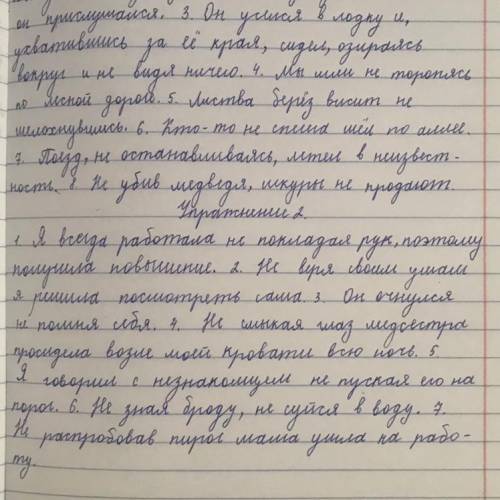 он прислушался. 3. Он уселся в лодку и,
ухватившись за её края, сидел, озираясь
вокруг и не видя ничего. 4. Мы шли не торопясь
по лесной дороге. 5. Листва берёз висит не
шелохнувшись. 6. Кто-то не спеша шёл по аллее.
7. Поезд, не останавливаясь, летел в неизвест-
ность. 8. Не убив медведя, шкуры не продают.
Упражнение 2.
1. Я всегда работала не покладая рук, поэтому
получила повышение. 2. Не веря своим ушам
я решила посмотреть сама. 3. Он очнулся
не помня себя. 4. Не смыкая глаз медсестра
просидела возле моей кровати всю ночь. 5.
Я говорил с незнакомцем не пуская его на
порог. 6. Не зная броду, не суйся в воду. 7.
Не распробовав пирог мама ушла на рабо-
ту.